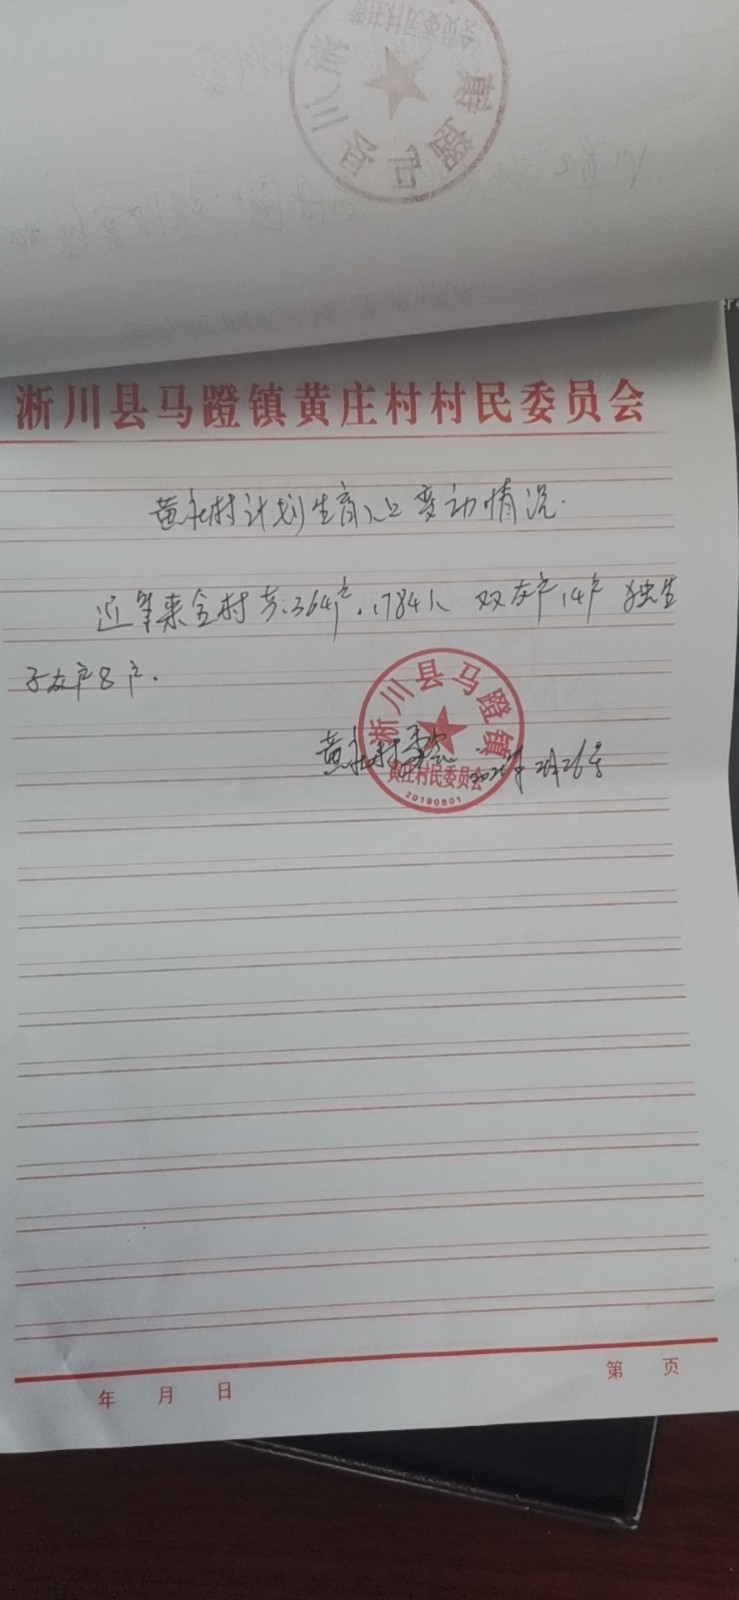 淅川县马蹬镇黄庄村村民委员会
黄庄村计划生育人口变动情况.
近年来全村共:364户,1784人 双女户14户 独生
子女户8户.
淅川县马蹬镇
黄庄村委会 2月26号
黄庄村民委员会
20180801
年 月 日
第 页